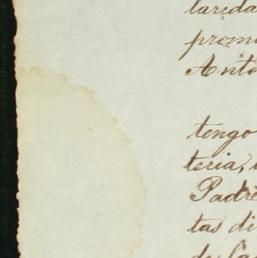 larida
prom
Anto
tengo
teria,
Padre
tas di